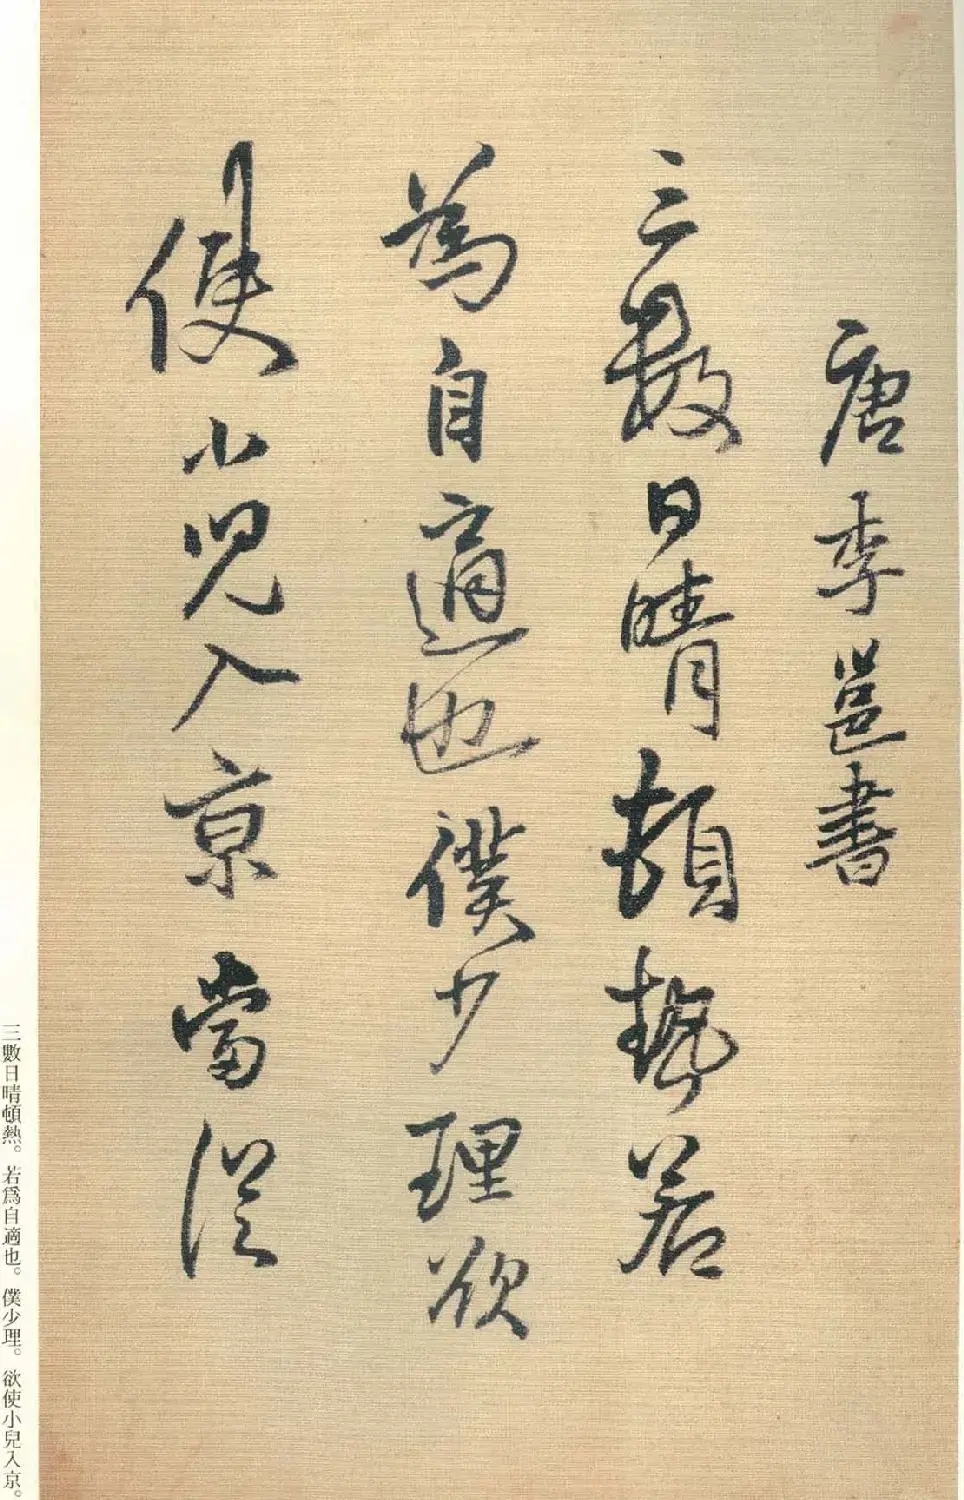 唐李邕書
三數日晴頓熱若
為自適也僕少理欲
使小兒入京當從
三數日晴頓熱。若爲自適也。僕少理。欲使小兒入京。